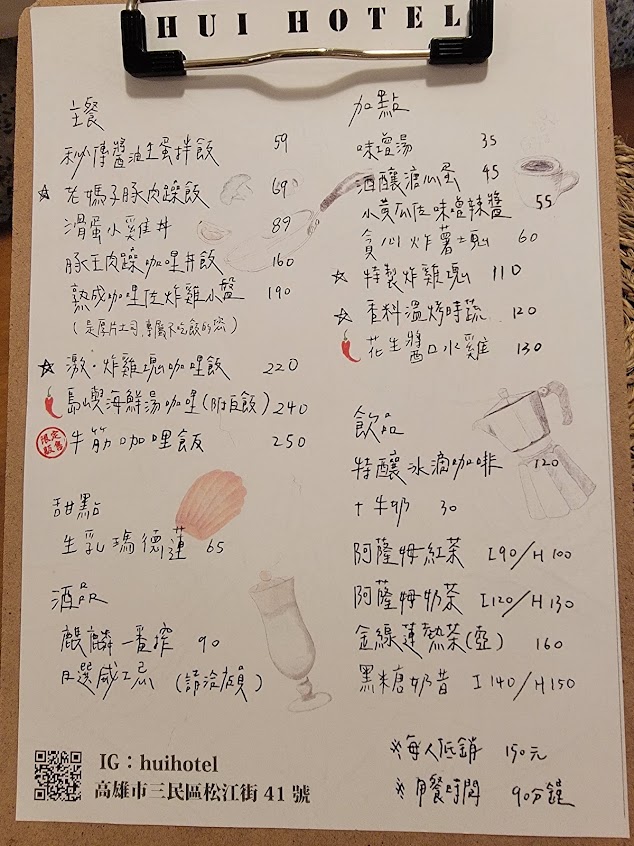 HUI HOTEL
主餐
秘傳醬油生蛋拌飯 59
☆ 老媽子豚肉躁飯 69
滑蛋小雞丼 89
豚王肉躁咖哩丼飯 160
熟成咖哩佐炸雞小盤 190
(是厚片土司,專屬不吃飯的您)
☆ 激・炸雞塊咖哩飯 220
馬喫海鮮湯咖哩(附白飯) 240
限定販售 牛筋咖哩飯 250
甜點
生乳瑪德蓮 65
酒品
麒麟一番搾 90
日選威士忌 (請洽店員)
加點
味增湯 35
酒釀溏心蛋 45
小黃瓜佐味增辣醬 55
貪心炸薯土塊 60
☆ 特製炸雞塊 110
☆ 香料溫烤時蔬 120
花生醬口水雞 130
飲品
特釀冰滴咖啡 120
+牛奶 30
阿薩姆紅茶 I90/H100
阿薩姆奶茶 I120/H130
金線蓮熱茶(壺) 160
黑糖奶昔 I140/H150
※每人低銷 150元
※用餐時間 90分鐘
IG:huihotel
高雄市三民區松江街 41 號